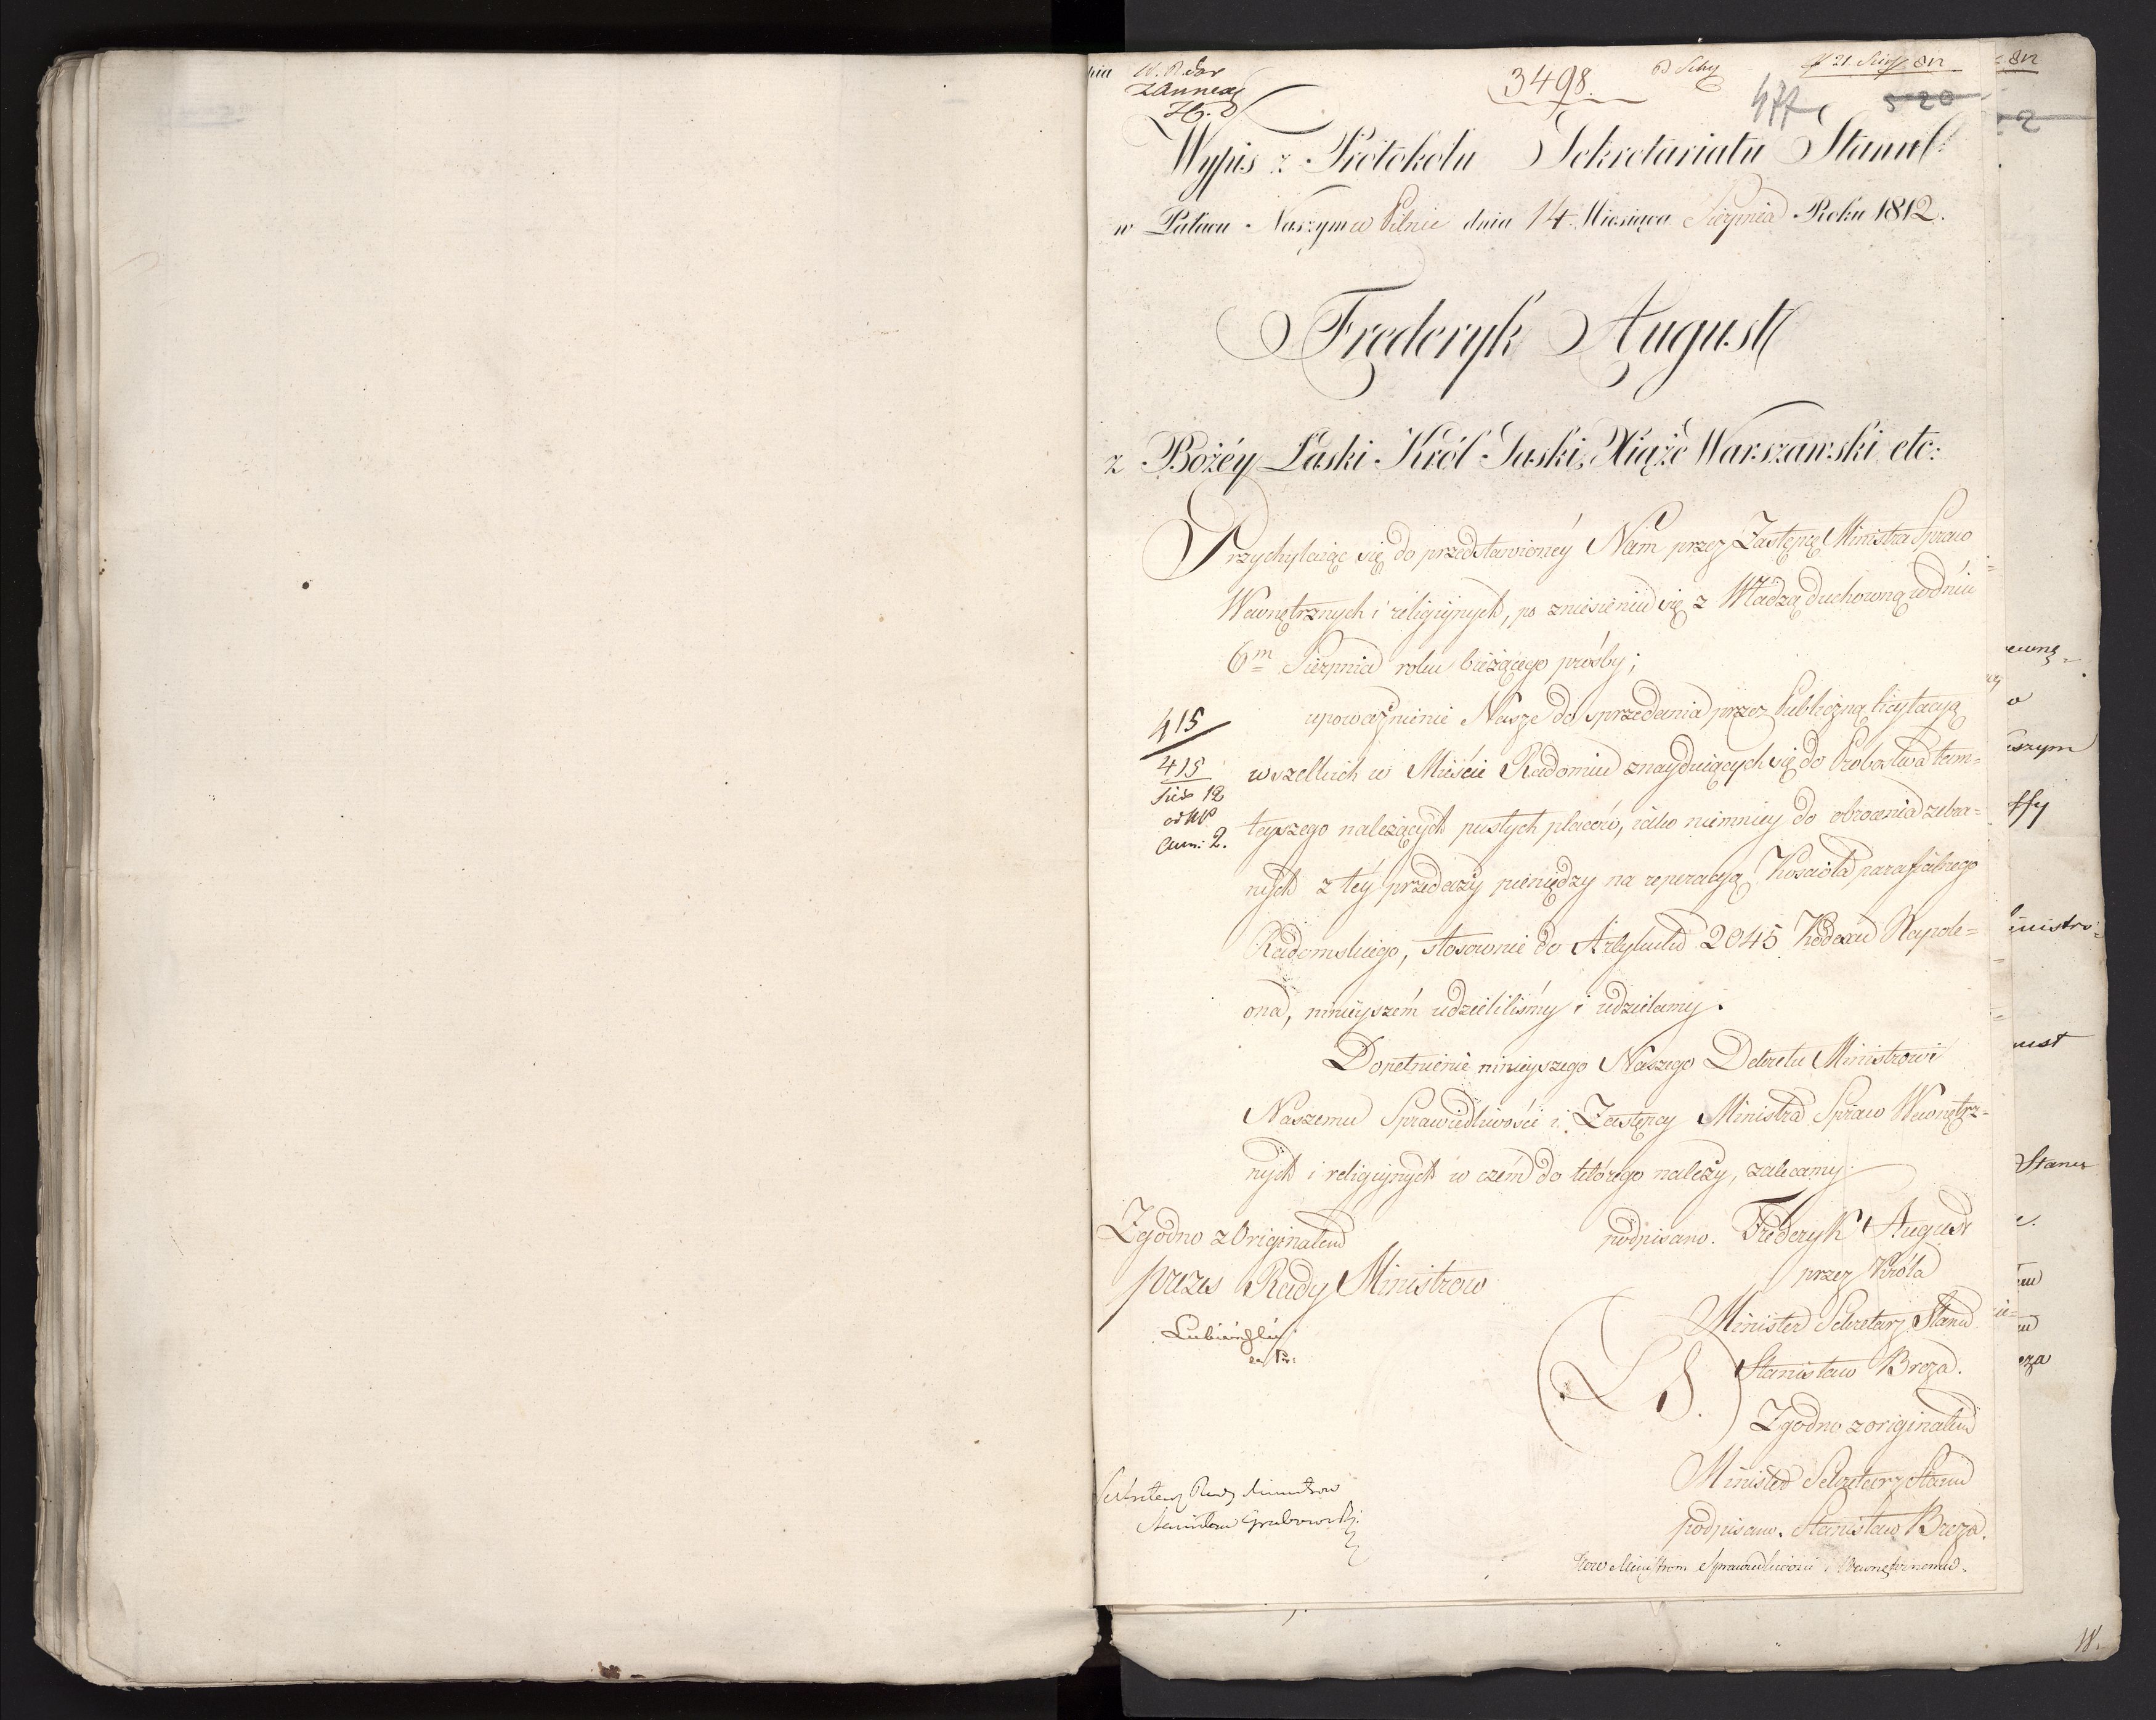 3498.
477
520
Wypis z Protokołu Sekretariatu Stanu
w Pałacu Naszym w Pilnic dnia 14 Miesiąca Sierpnia Roku 1812.
Frederyk August
z Bożéy Łaski Król Saski, Xiąże Warszawski etc:
Przychylaiąc się do przedstawionéy Nam przez Zastępcę Ministra Spraw
Wewnętrznych i religiynych, po zniesieniu się z Władzą duchowną w dniu
6m Sierpnia roku bieżącego prośby;
upoważnienie Nasze do sprzedania przez Publiczną licytacyą
415
wszelkich w Mieście Radomiu znayduiących się do Probostwa tam=
415
Sier 12
teyszego należących pustych placów, iako niemniey do obrócenia zebra=
ad NP
Ann: 2.
nych z téy przedaży pieniędzy na reperacyą Kościoła parafialnego
Radomskiego, stosownie do Artykułu 2045 Kodexu Napole=
ona, ninieyszém udzieliliśmy i udzielamy.
Dopełnienie ninieyszego Naszego Dekretu Ministrowi
Naszemu Sprawiedliwości i Zastępcy Ministra Spraw Wewnętrz=
nych i religiynych w czém do którego należy, zalecamy.
Zgodno z Originałem
podpisano. Frederyk August
prezes Rady Ministrow
przez Króla
Lubieński
Minister Sekretarz Stanu
Stanisław Breza.
L S.
Zgodno z originałem
Minister Sekretarz Stanu
Sekretarz Rady Ministrow
Stanisław Grabowski
podpisano. Stanisław Breza.
Ministrom Sprawiedliwości i Wewnętrznemu.